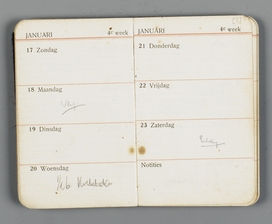 JANUARI 4e week
17 Zondag
18 Maandag
19 Dinsdag
20 Woensdag
JANUARI 4e week
21 Donderdag
22 Vrijdag
23 Zaterdag
Notities